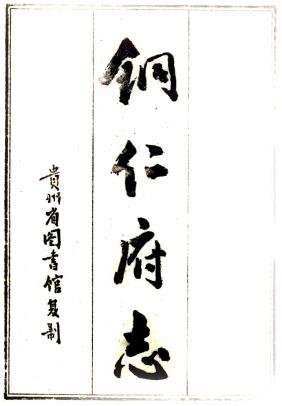 铜仁府志
贵州省图书馆复制